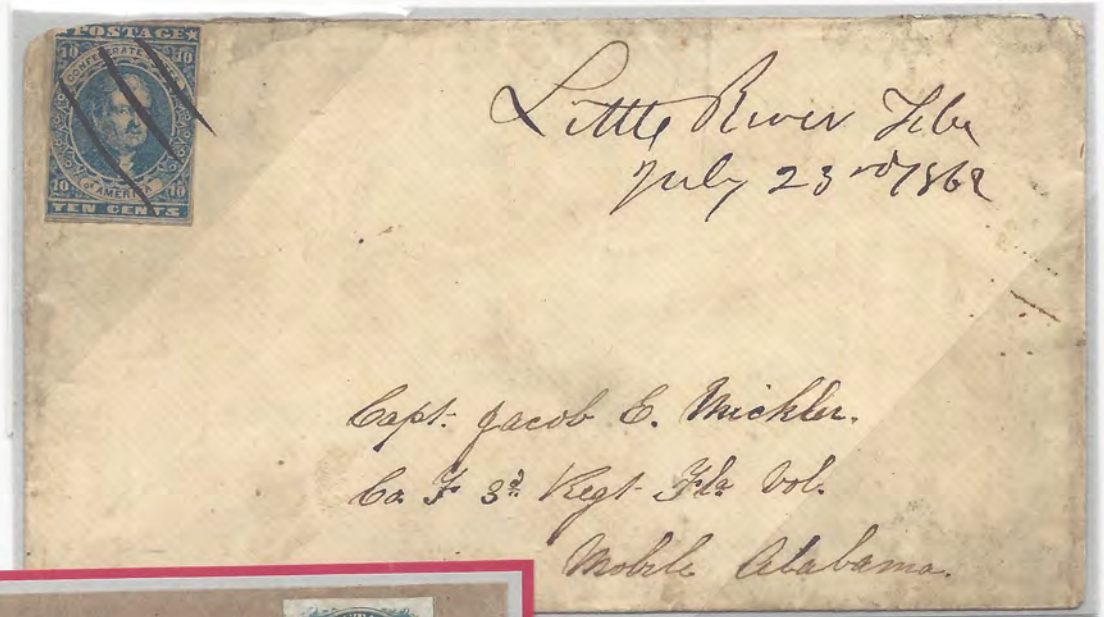 POSTAGE
10 CONFEDERATE STATES 10
10 of AMERICA 10
TEN CENTS
Little River Fla
July 23rd 1862
Capt. Jacob E. Mickler.
Co. F 3d Regt Fla Vol.
Mobile Alabama.